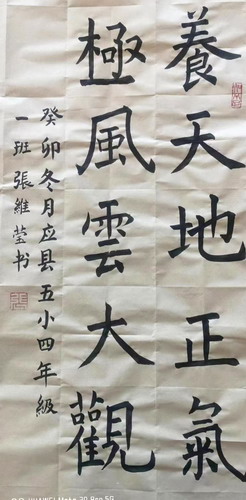 養天地正氣
極風雲大觀
癸卯冬月应县五小四年級
一班張維莹书